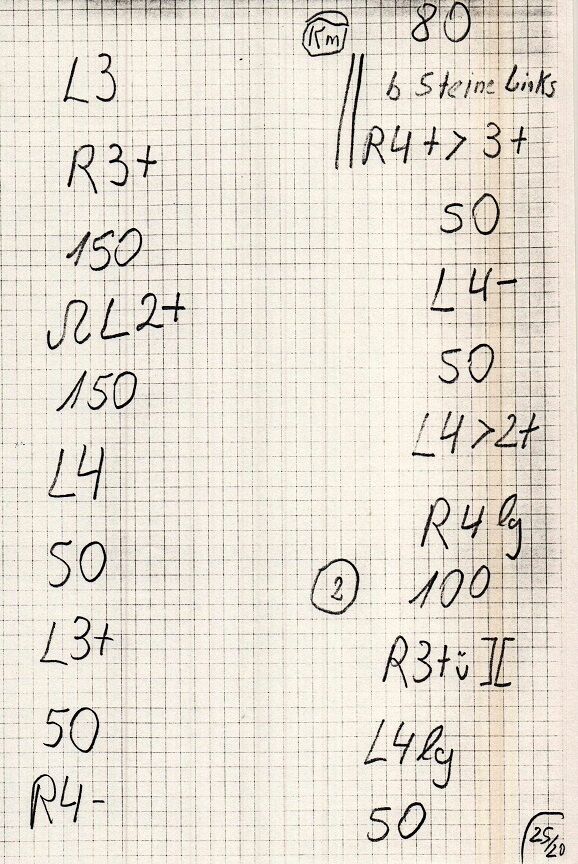 L3
R3+
150
Ω L2+
150
L4
50
L3+
50
R4-
Km
80
b Steine Links
R4+ > 3+
50
L4-
50
L4 > 2+
R4 lg
② 100
R3+ ü ][
L4 lg
50
25/20